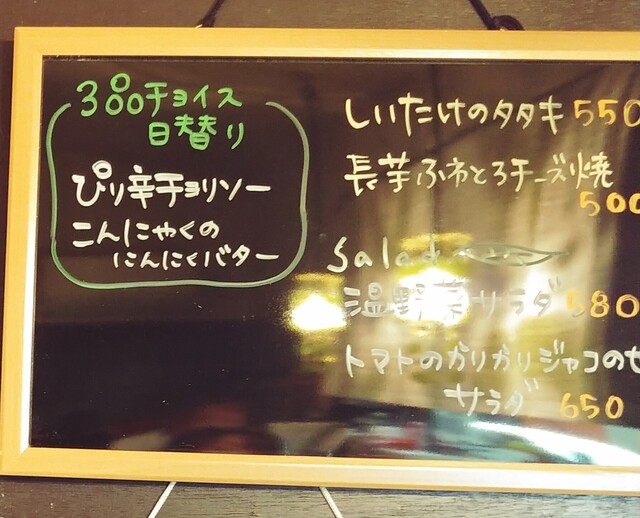 380チョイス
日替り
ぴり辛チョリソー
こんにゃくの
にんにくバター
しいたけのタタキ 550
長芋ふわとろチーズ焼
500
Salad
温野菜サラダ 580
トマトのかりかりジャコのせ
サラダ 650